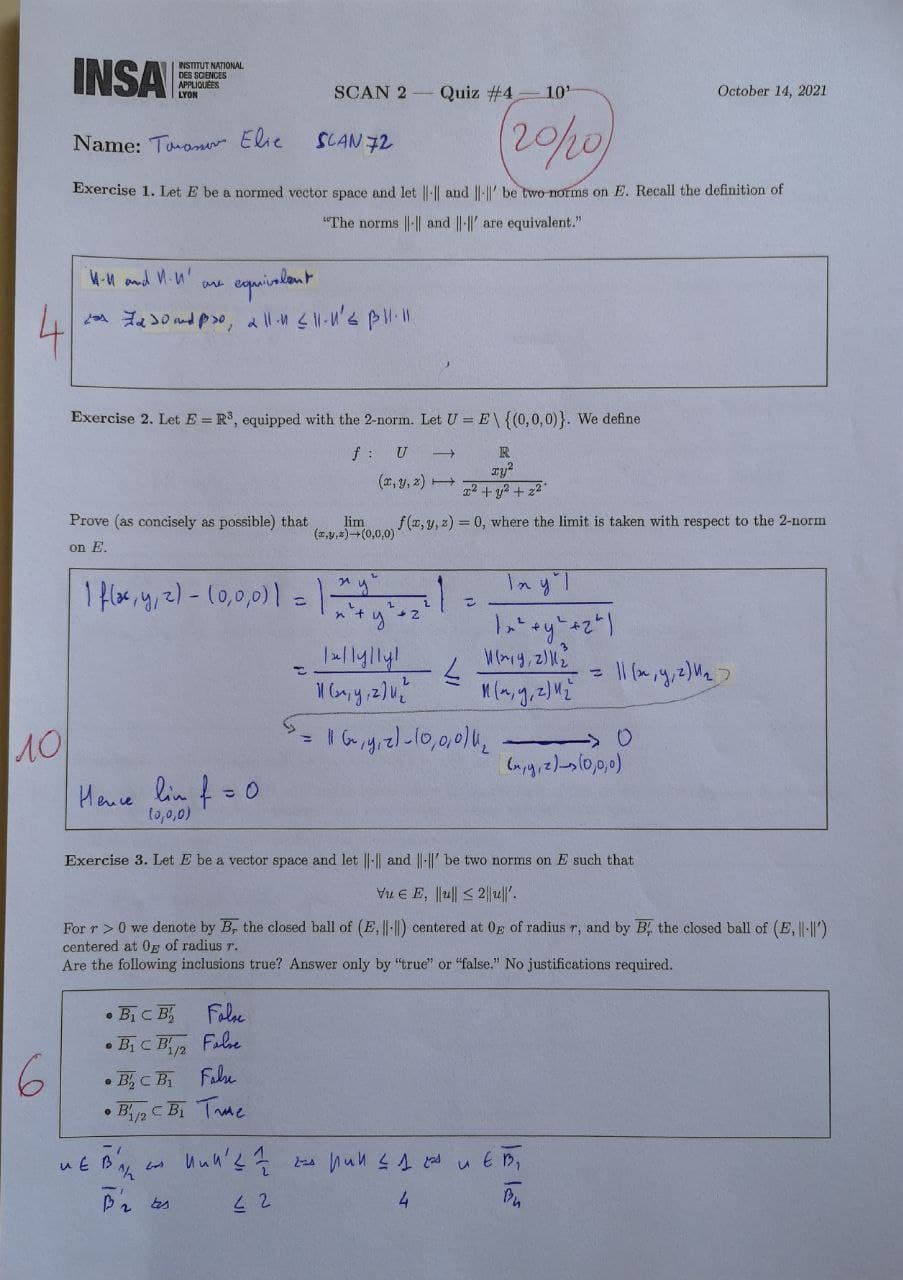 INSA INSTITUT NATIONAL
DES SCIENCES
APPLIQUÉES
LYON
SCAN 2 — Quiz #4 — 10'
October 14, 2021
Name: Elie SCAN 72
20/20
Exercise 1. Let E be a normed vector space and let ‖·‖ and ‖·‖′ be two norms on E. Recall the definition of
“The norms ‖·‖ and ‖·‖′ are equivalent.”
‖·‖ and ‖·‖′ are equivalent
4
⟺ ∃α>0 and β>0, α‖·‖ ≤ ‖·‖′ ≤ β‖·‖
Exercise 2. Let E = ℝ³, equipped with the 2-norm. Let U = E \ {(0,0,0)}. We define
f : U ⟶ ℝ
(x, y, z) ⟼ xy² / (x² + y² + z²).
Prove (as concisely as possible) that lim (x,y,z)→(0,0,0) f(x, y, z) = 0, where the limit is taken with respect to the 2-norm
on E.
|f(x,y,z) - (0,0,0)| = |xy² / (x²+y²+z²)| = |xy²| / |x²+y²+z²|
= |x||y||y| / ‖(x,y,z)‖₂² ≤ ‖(x,y,z)‖₂³ / ‖(x,y,z)‖₂² = ‖(x,y,z)‖₂
= ‖(x,y,z)-(0,0,0)‖₂ ⟶ 0
(x,y,z)→(0,0,0)
10
Hence lim f = 0
(0,0,0)
Exercise 3. Let E be a vector space and let ‖·‖ and ‖·‖′ be two norms on E such that
∀u ∈ E, ‖u‖ ≤ 2‖u‖′.
For r > 0 we denote by B̅ᵣ the closed ball of (E, ‖·‖) centered at 0_E of radius r, and by B̅′ᵣ the closed ball of (E, ‖·‖′)
centered at 0_E of radius r.
Are the following inclusions true? Answer only by “true” or “false.” No justifications required.
• B̅₁ ⊂ B̅′₂ False
• B̅₁ ⊂ B̅′₁/₂ False
6
• B̅′₂ ⊂ B̅₁ False
• B̅′₁/₂ ⊂ B̅₁ True
u ∈ B̅′₁/₂ ⟺ ‖u‖′ ≤ 1/2 ⟺ ‖u‖ ≤ 1 ⟺ u ∈ B̅₁
B̅′₂ ⟺ ≤ 2 4 B̅₄